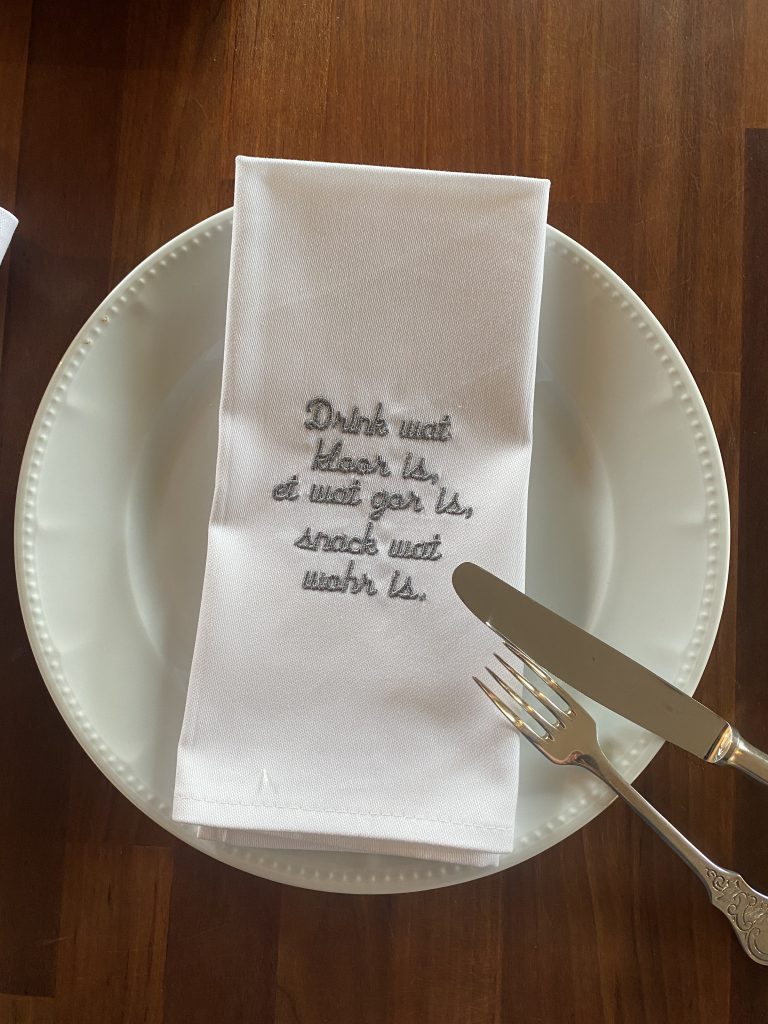 Drink wat
kloor is,
et wat gor is,
snack wat
wohr is.